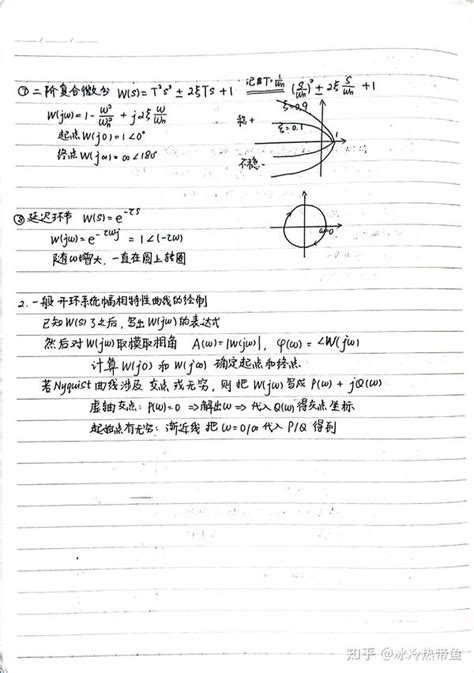 ⑦ 二阶复合微分 W(s) = T²s² ± 2ξTs + 1 记T=1/ωn (s/ωn)² ± 2ξ s/ωn + 1
W(jω) = 1 - ω²/ωn² + j2ξ ω/ωn
起点 W(j0) = 1∠0°
终点 W(j∞) = ∞∠180°
ξ=0.9
稳+
ξ=0.1
1
不稳-
⑧ 延迟环节 W(s) = e^-τs
W(jω) = e^-τωj = 1∠(-τω)
随ω增大，一直在圆上转圈
ω=0
2. 一般开环系统幅相特性曲线的绘制
已知W(s)了之后，写出W(jω)的表达式
然后对W(jω)取模取相角 A(ω)=|W(jω)|, φ(ω)=∠W(jω)
计算W(j0)和W(j∞)确定起点和终点.
若Nyquist曲线涉及交点或无穷，则把W(jω)写成P(ω)+jQ(ω)
虚轴交点：P(ω)=0 ⇒解出ω⇒代入Q(ω)得交点坐标
起始点有无穷：渐近线 把ω=0/∞代入P/Q得到
知乎 @冰冷热带鱼